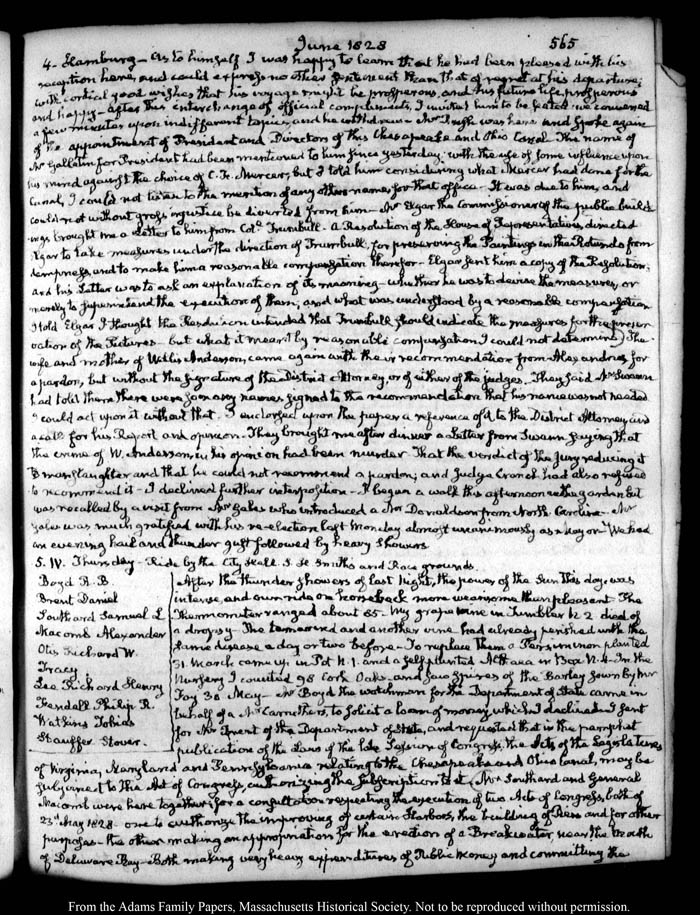 June 1828 565
4. Hamburg — As to himself I was happy to learn that he had been pleased with his
reception here, and could express no other sentiment than that of regret at his departure;
with cordial good wishes that his voyage might be prosperous, and his future life, prosperous
and happy — After this interchange of official compliments, I invited him to be seated we conversed
a few minutes upon indifferent topics, and he withdrew — Mr Rush was here and spoke again
of the appointment of President and Directors of this Chesapeake and Ohio Canal. The name of
Mr Gallatin for President had been mentioned to him since yesterday; with the use of some influence upon
his mind against the choice of C. F. Mercer, but I told him considering what Mercer had done for the
Canal, I could not listen to the mention of any other name for that office — It was due to him, and
could not without gross injustice be diverted from him — Mr Elgar the Commissioner of the public build
ings brought me a Letter to him from Coll. Trumbull. A Resolution of the House of Representatives, directed
Elgar to take measures under the direction of Trumbull, for preserving the Paintings in the Rotunda from
dampness, and to make him a reasonable compensation therefor — Elgar sent him a copy of the Resolution;
and his Letter was to ask an explanation of its meaning — whether he was to devise the measures, or
merely to superintend the execution of them; and what was understood by a reasonable compensation
I told Elgar I thought the Resolution intended that Trumbull should indicate the measures for the preser
vation of the Pictures — but what it meant by reasonable compensation I could not determine — The
wife and mother of Willis Anderson, came again with their recommendation from Alexandria, for
a pardon, but without the signature of the District Attorney, or of either of the judges. They said Mr Swann
had told them there were so many names signed to the recommendation that his name was not needed
I could act upon it without that. I endorsed upon the paper a reference of it to the District Attorney and
a call for his Report and opinion. They brought me after dinner a Letter from Swann saying that
the crime of W. Anderson, in his opinion had been murder. That the verdict of the Jury reducing it
to manslaughter and that he could not recommend a pardon; and Judge Cranch had also refused
to recommend it — I declined further interposition — I began a walk this afternoon in the garden but
was recalled by a visit from Mr Gales who introduced a Mr Donaldson from North Carolina — Mr
Gales was much gratified with his re-election last Monday almost unanimously as Mayor. We had
an evening hail and thunder gust followed by heavy showers
5. IV. Thursday — Ride by the City Hall. S. H. Smith's and Race grounds.
Boyd R. B. After the thunder showers of last Night, the power of the Sun this day, was
Brent Daniel intense, and our ride on horseback more wearisome than pleasant. The
Southard Samuel L Thermometer ranged about 85 — My grape vine in Tumbler N. 2 died of
Macomb Alexander a dropsy — The tamarind and another vine had already perished with the
Otis Richard W. same disease a day or two before — To replace them a Persimmon planted
Tracy 31 March came up in Pot N. 1. and a self planted in Box N. 4. In the
Lee Richard Henry Nursery I counted 98 Cork Oaks — and four spires of the Barley sown by Mr
Kendall Philip R. Foy 30 May — Mr Boyd the watchman for the Department of State came in
Watkins Tobias behalf of a Mr Carruthers, to solicit a loan of money which I declined — I sent
Stauffer Stover. for Mr Brent of the Department of State, and requested that in the pamphlet
publication of the Laws of the late Session of Congress, the Acts of the Legislatures
of Virginia, Maryland and Pennsylvania relating to the Chesapeake and Ohio Canal, may be
subjoined to the Act of Congress, authorizing the Subscription to it. Mr Southard and General
Macomb were here together, for a consultation respecting the execution of two Acts of Congress, both of
23d May 1828 — one to authorize the improving of certain Harbors, the building of Piers and for other
purposes — the other making an appropriation for the erection of a Breakwater, near the Mouth
of Delaware Bay — Both making very heavy expenditures of Public Money and committing the
From the Adams Family Papers, Massachusetts Historical Society. Not to be reproduced without permission.